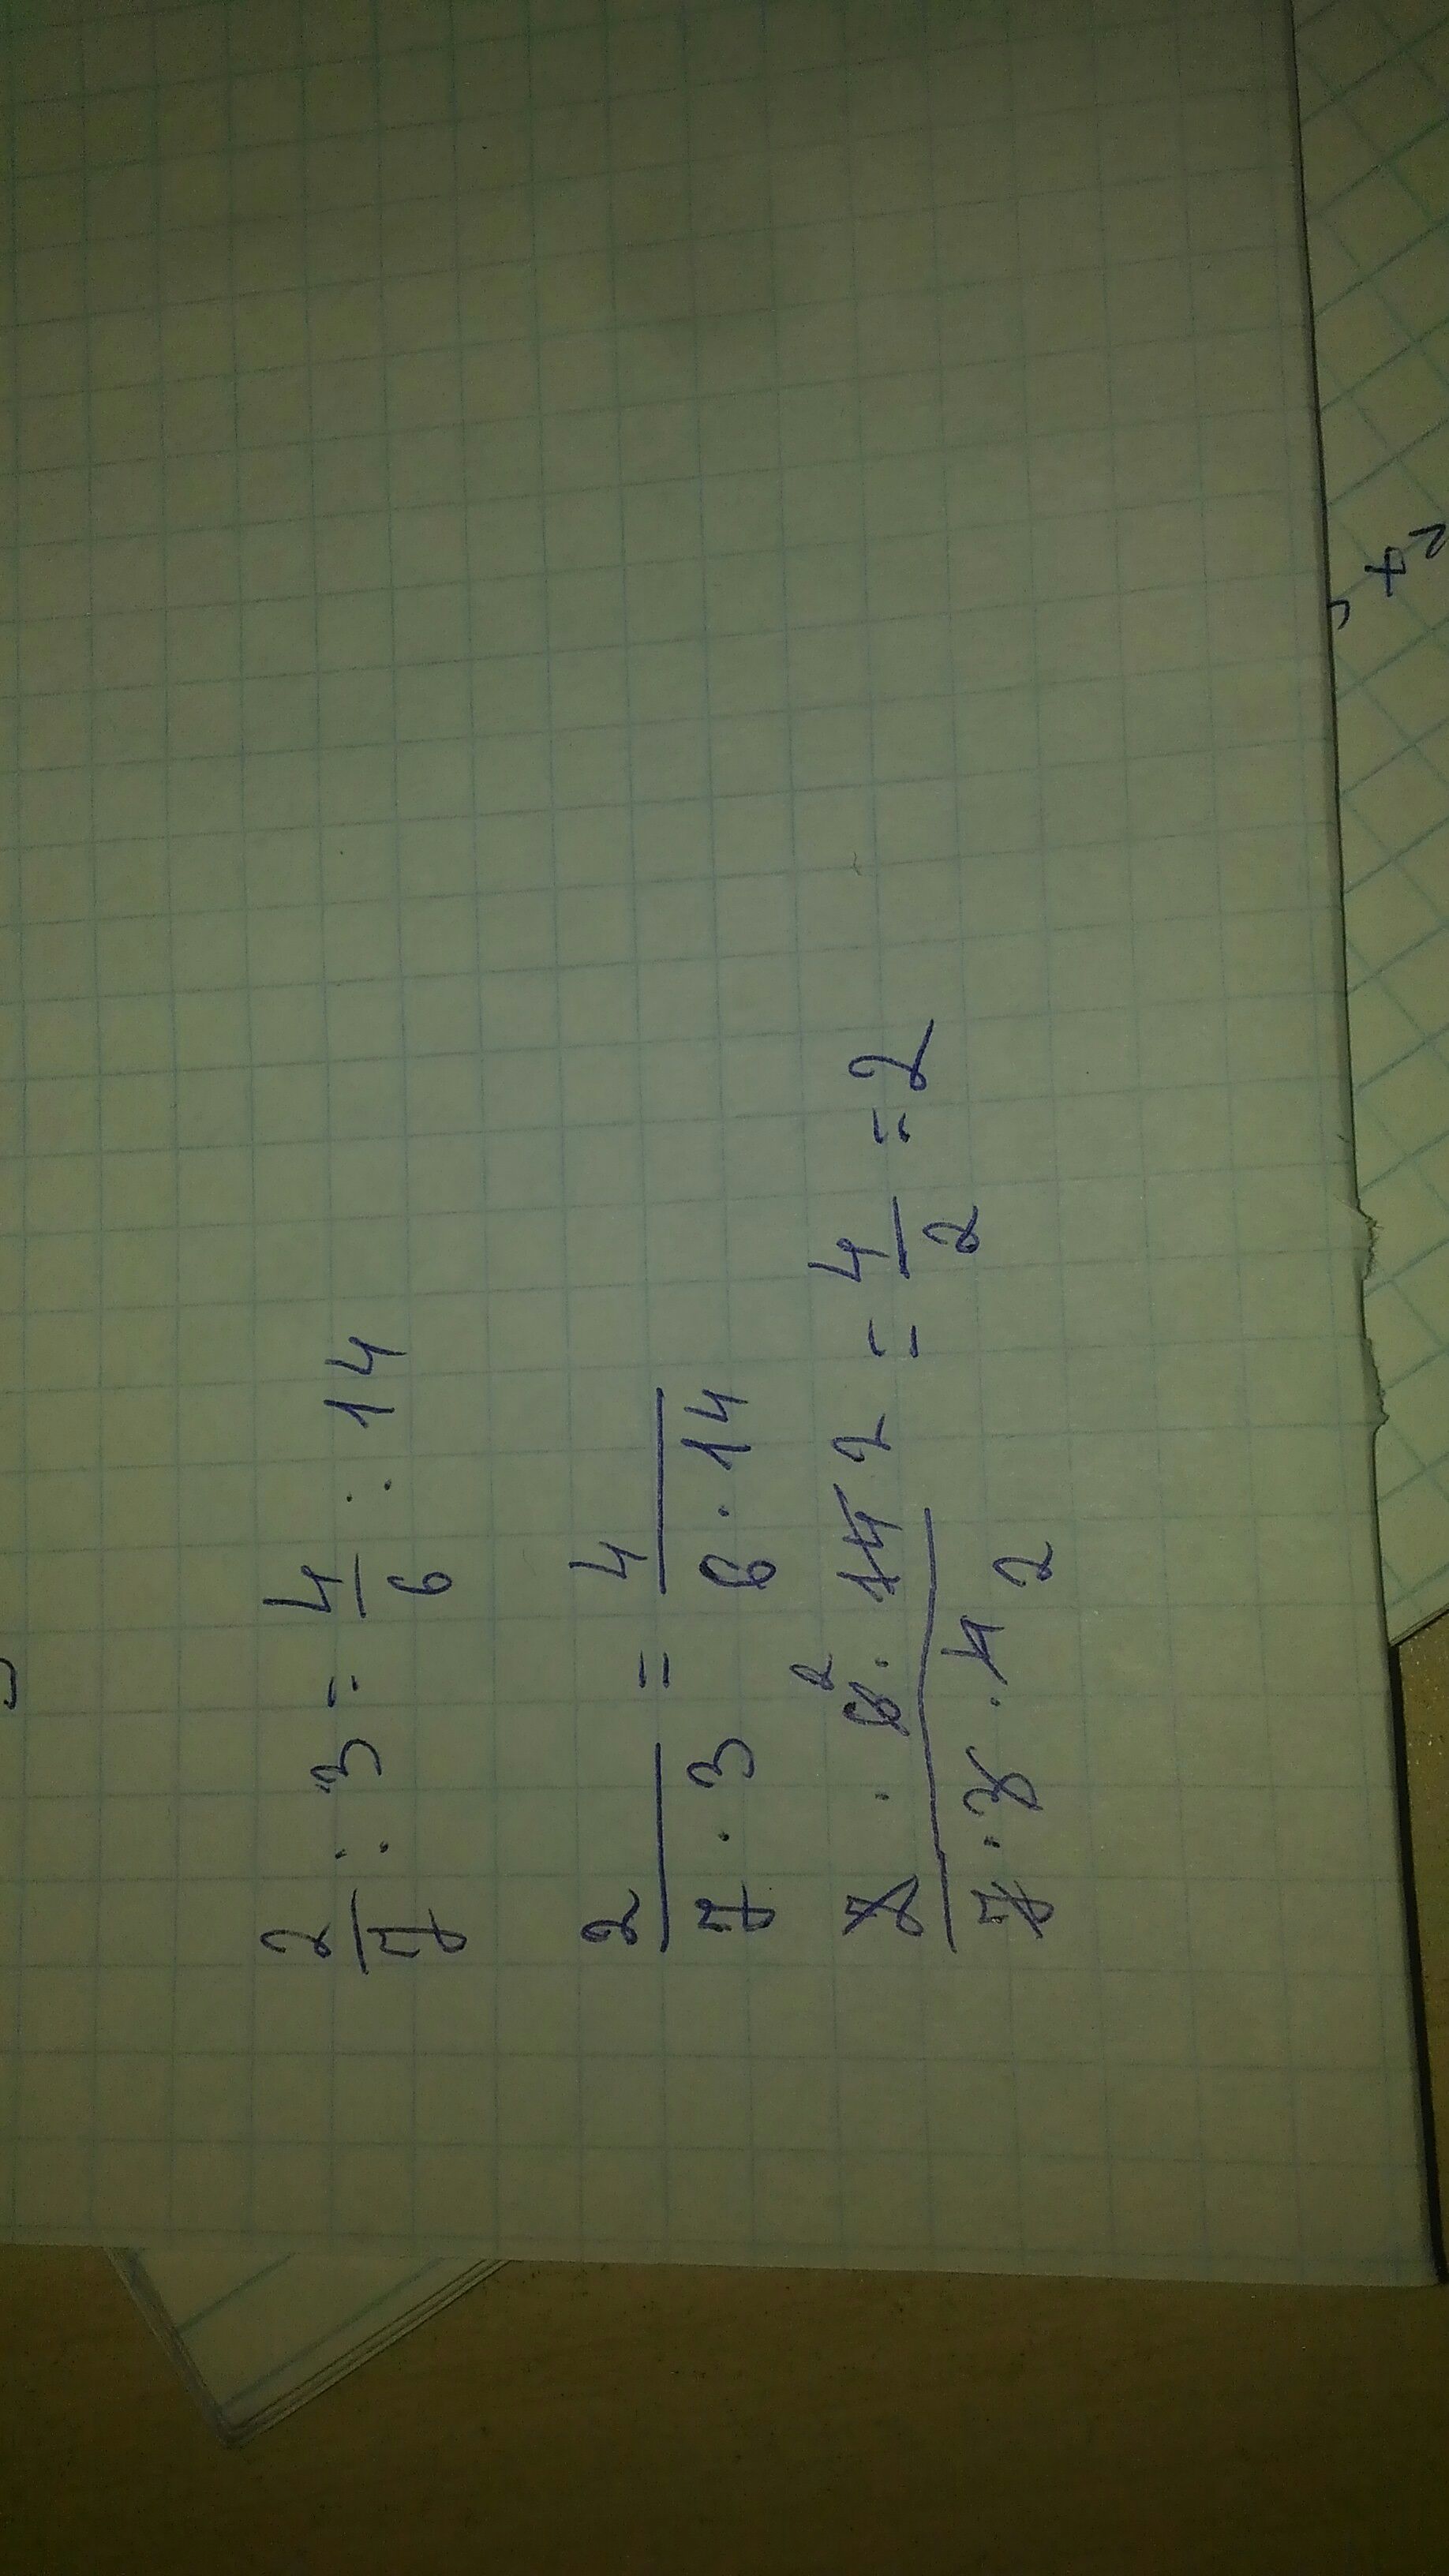 2/7 : 3 = 4/6 : 14
2/(7 · 3) = 4/(6 · 14)
(2 · 6 2 · 14 2)/(7 · 3 · 4 2) = 4/2 = 2